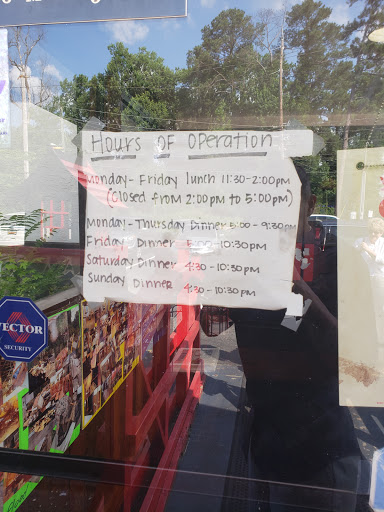 Hours of Operation
Monday - Friday lunch 11:30-2:00pm
(closed from 2:00pm to 5:00pm)
Monday - Thursday Dinner 5:00 - 9:30pm
Friday Dinner 5:00 - 10:30pm
Saturday Dinner 4:30 - 10:30pm
Sunday Dinner 4:30 - 10:30pm
VECTOR
SECURITY